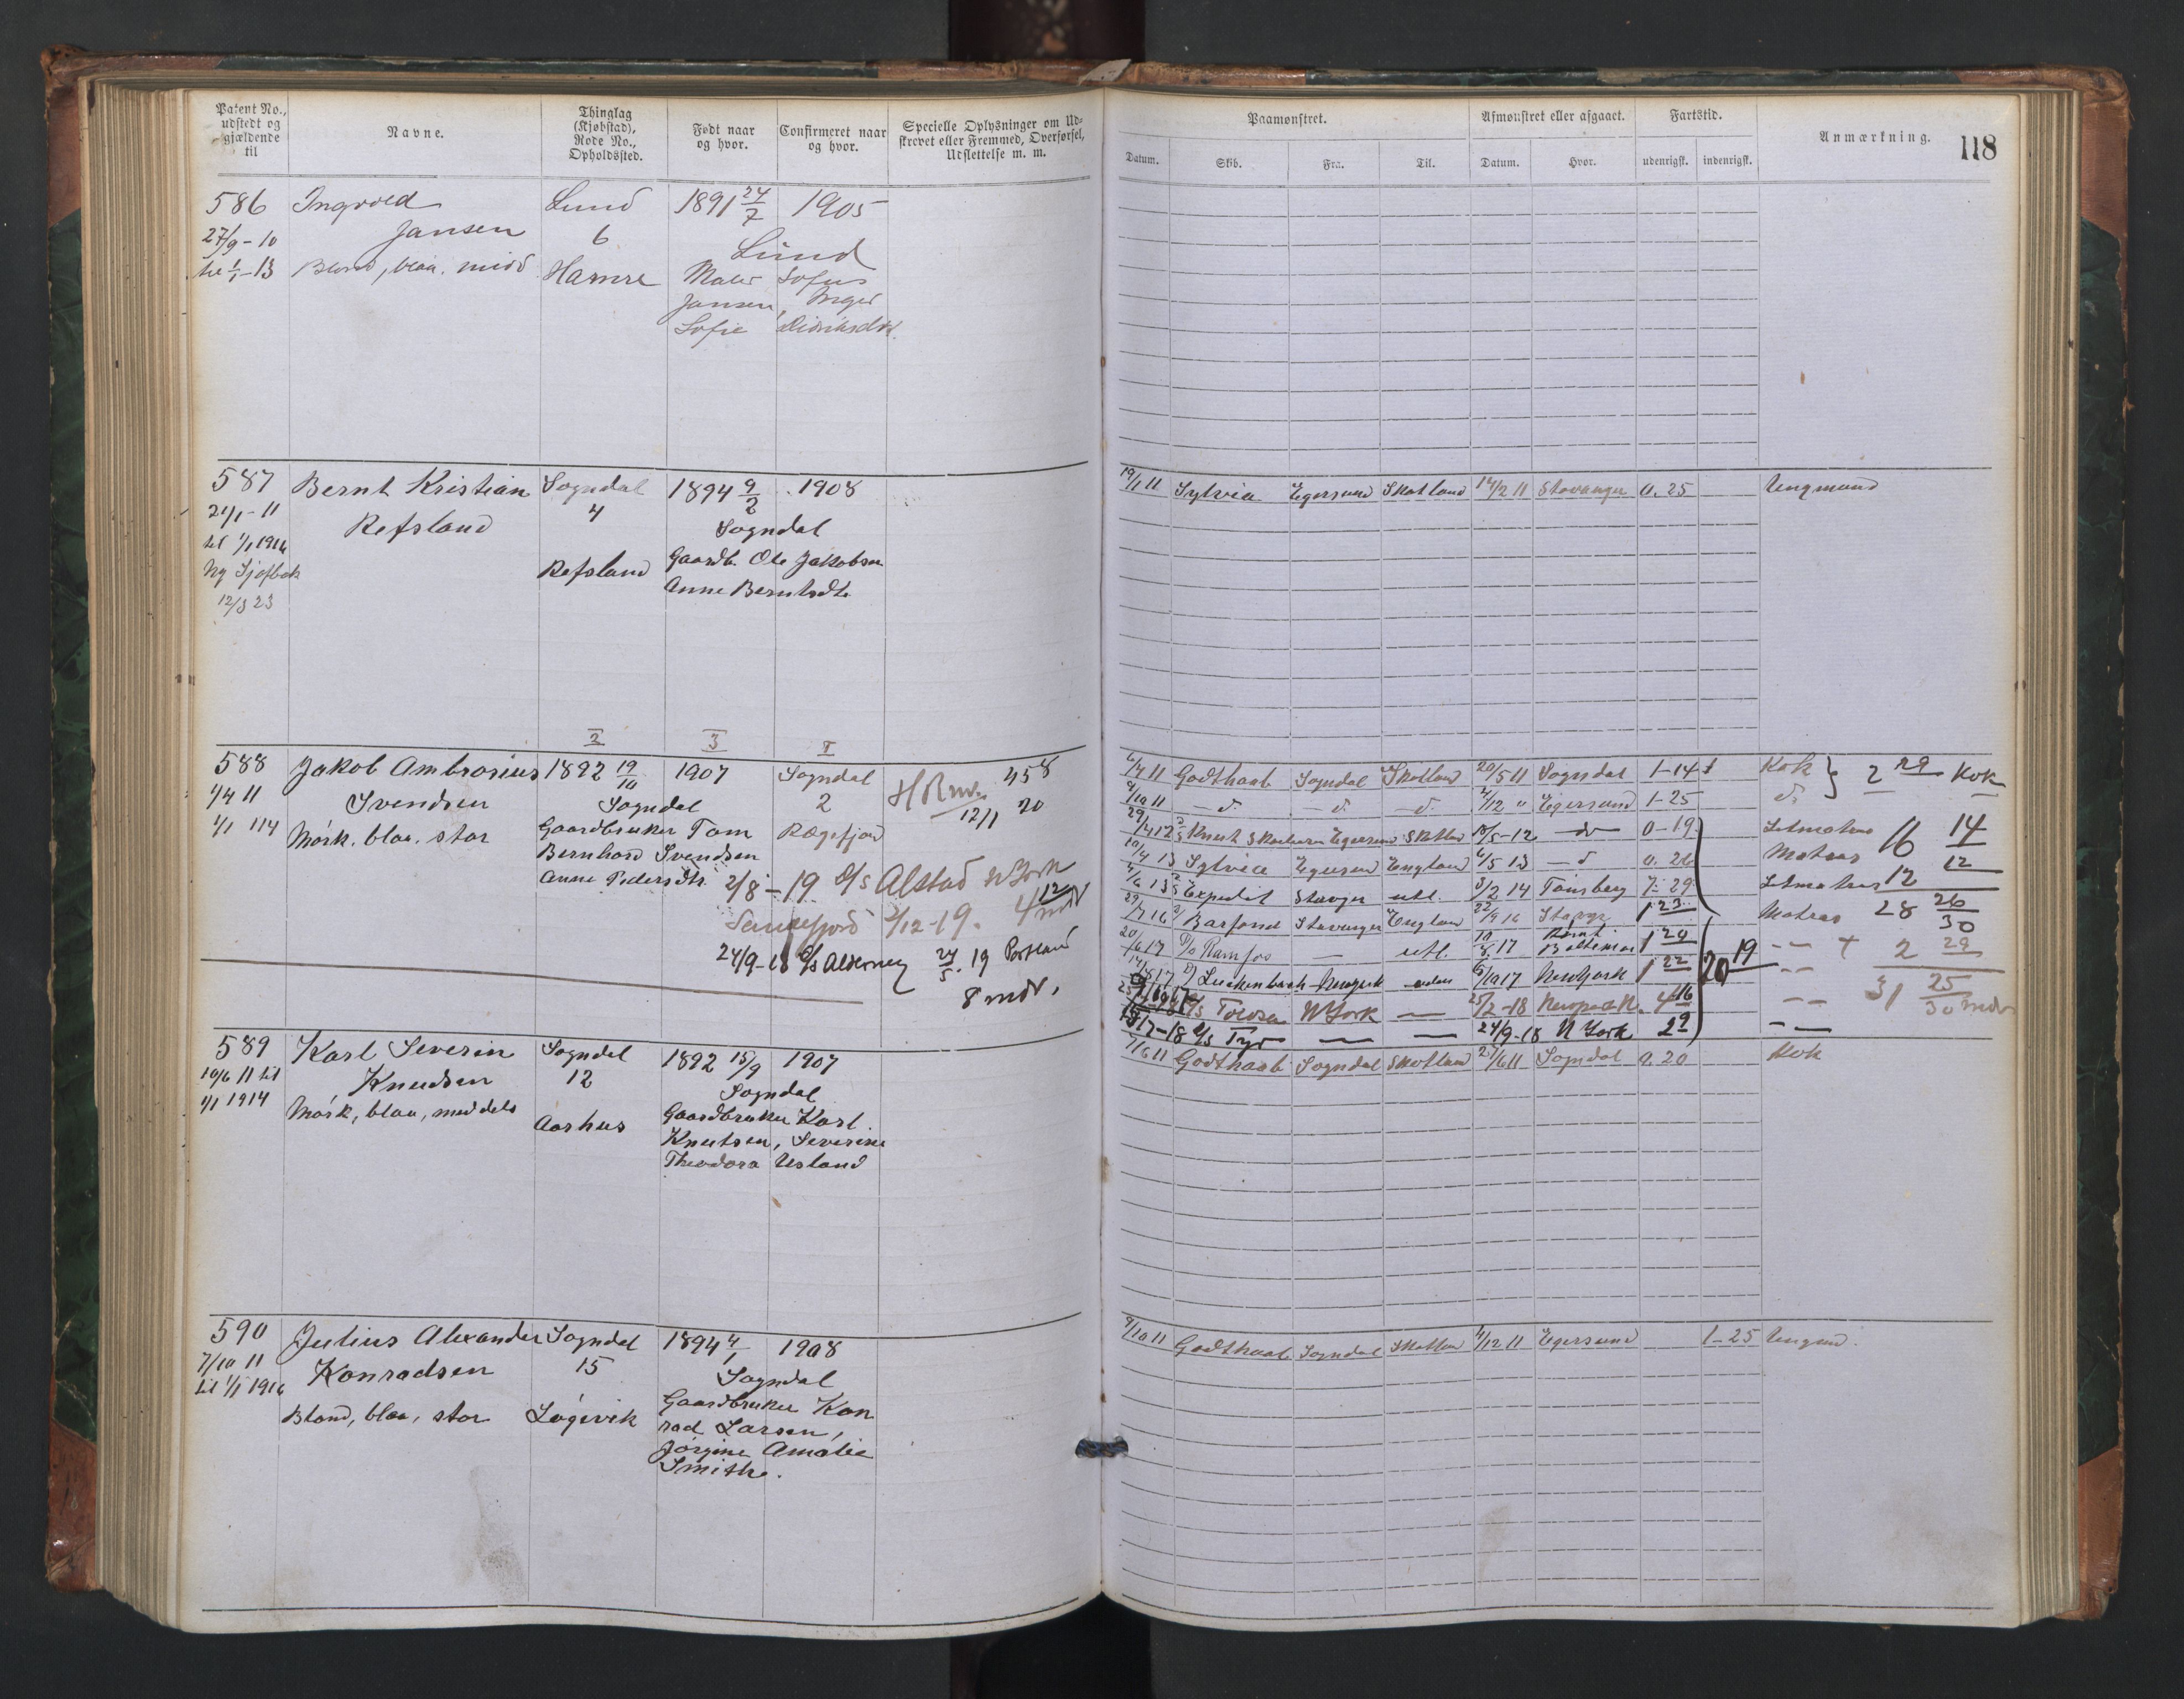 Patent No., udstedt og gjældende til
Navne.
Thinglag (Kjøbstad), Rode No., Opholdssted.
Født naar og hvor.
Confirmeret naar og hvor.
Specielle Oplysninger om Udskrevet eller Fremmed, Overførsel, Udslettelse m. m.
Paamønstret.
Afmønstret eller afgaaet.
Fartstid.
Anmærkning.
118
Datum.
Skib.
Fra.
Til.
Datum.
Hvor.
udenrigsk.
indenrigsk.
586 Ingvold Lund 1891 24/7 1905
27/9-10 Jansen 6 Lund
til 1/1-13 Blond, blaa. midd Hamre Maler Sofus
Jansen, Inger
Sofie Didriksdt.
587 Bernt Kristian Sogndal 1894 9/2 1908
21/1-11 Refsland 4 Sogndal
til 1/1 1916
Ny Sjøfbok Refsland Gaardb. Ole Jakobsen
12/3 23 Anne Berntsdt.
19/1 11 Sylvia Egersund Skotland 14/2 11 Stavanger 0.25 Ungmand
2 3 1
588 Jakob Ambrosius 1892 19/10 1907 Sogndal 458
1/4 11 Svendsen Sogndal 2 12/1 20
1/1 114 Mørk. blaa. stor Gaardbruker Tom Rægefjord
Bernhard Svendsen
Anne Pedersdtr. 2/8-19 S/S Alstad N York
Sandefjord 2/12-19. 4 12 mdr
24/9-18 S/S Alderney 24/5.19 Portland
8 mdr.
6/4 11 Godthaab Sogndal Skotland 20/5 11 Sogndal 1-14 Kok } 2 29 Kok
9/10 11 — d. — d. — d. 4/12 " Egersund 1-25 d.
29/4 12 Knut Skaaluren Egersund Skotland 18/5-12 — d — 0-19 Letmatros 16 14
10/4 13 Sylvia Egersund England 6/5 13 — d 0.26 Matros 12
4/6 13 Expedit Stavger utl. 3/2 14 Tønsberg 7-29 Letmatros 12
29/7 16 Barfond Stavanger England 22/9 16 Stavgr 1 23 Matros 28 26/30
20/6 17 D/S Ramfos — utl. Baltimor 1 29 — + 2 29
D/S Luckenbach Newyork 6/10 17 NewYork 1 22 20 19 — 31 25/30 mdr
S/S N York — 25/2-18 4 16 —
17-18 S/S Tyr — — 24/9-18 N York 2 9 —
589 Karl Severin Sogndal 1892 15/9 1907
10/6 11 til Knudsen 12 Sogndal
1/1 1914 Mørk, blaa, middels Aarhus Gaardbruker Karl
Knutsen, Severine
Theodora Usland
7/6 11 Godthaab Sogndal Skotland 27/6 11 Sogndal 0.20 Kok
590 Julius Alexander Sogndal 1894 4/1 1908
7/10 11 Konradsen 15 Sogndal
til 1/1 1916 Gaardbruker Kon
Blond, blaa, stor Løgevik rad Larsen,
Jørgine Amalie
Smith.
9/10 11 Godthaab Sogndal Skotland 4/12 11 Egersund 1-25 Ungmd.